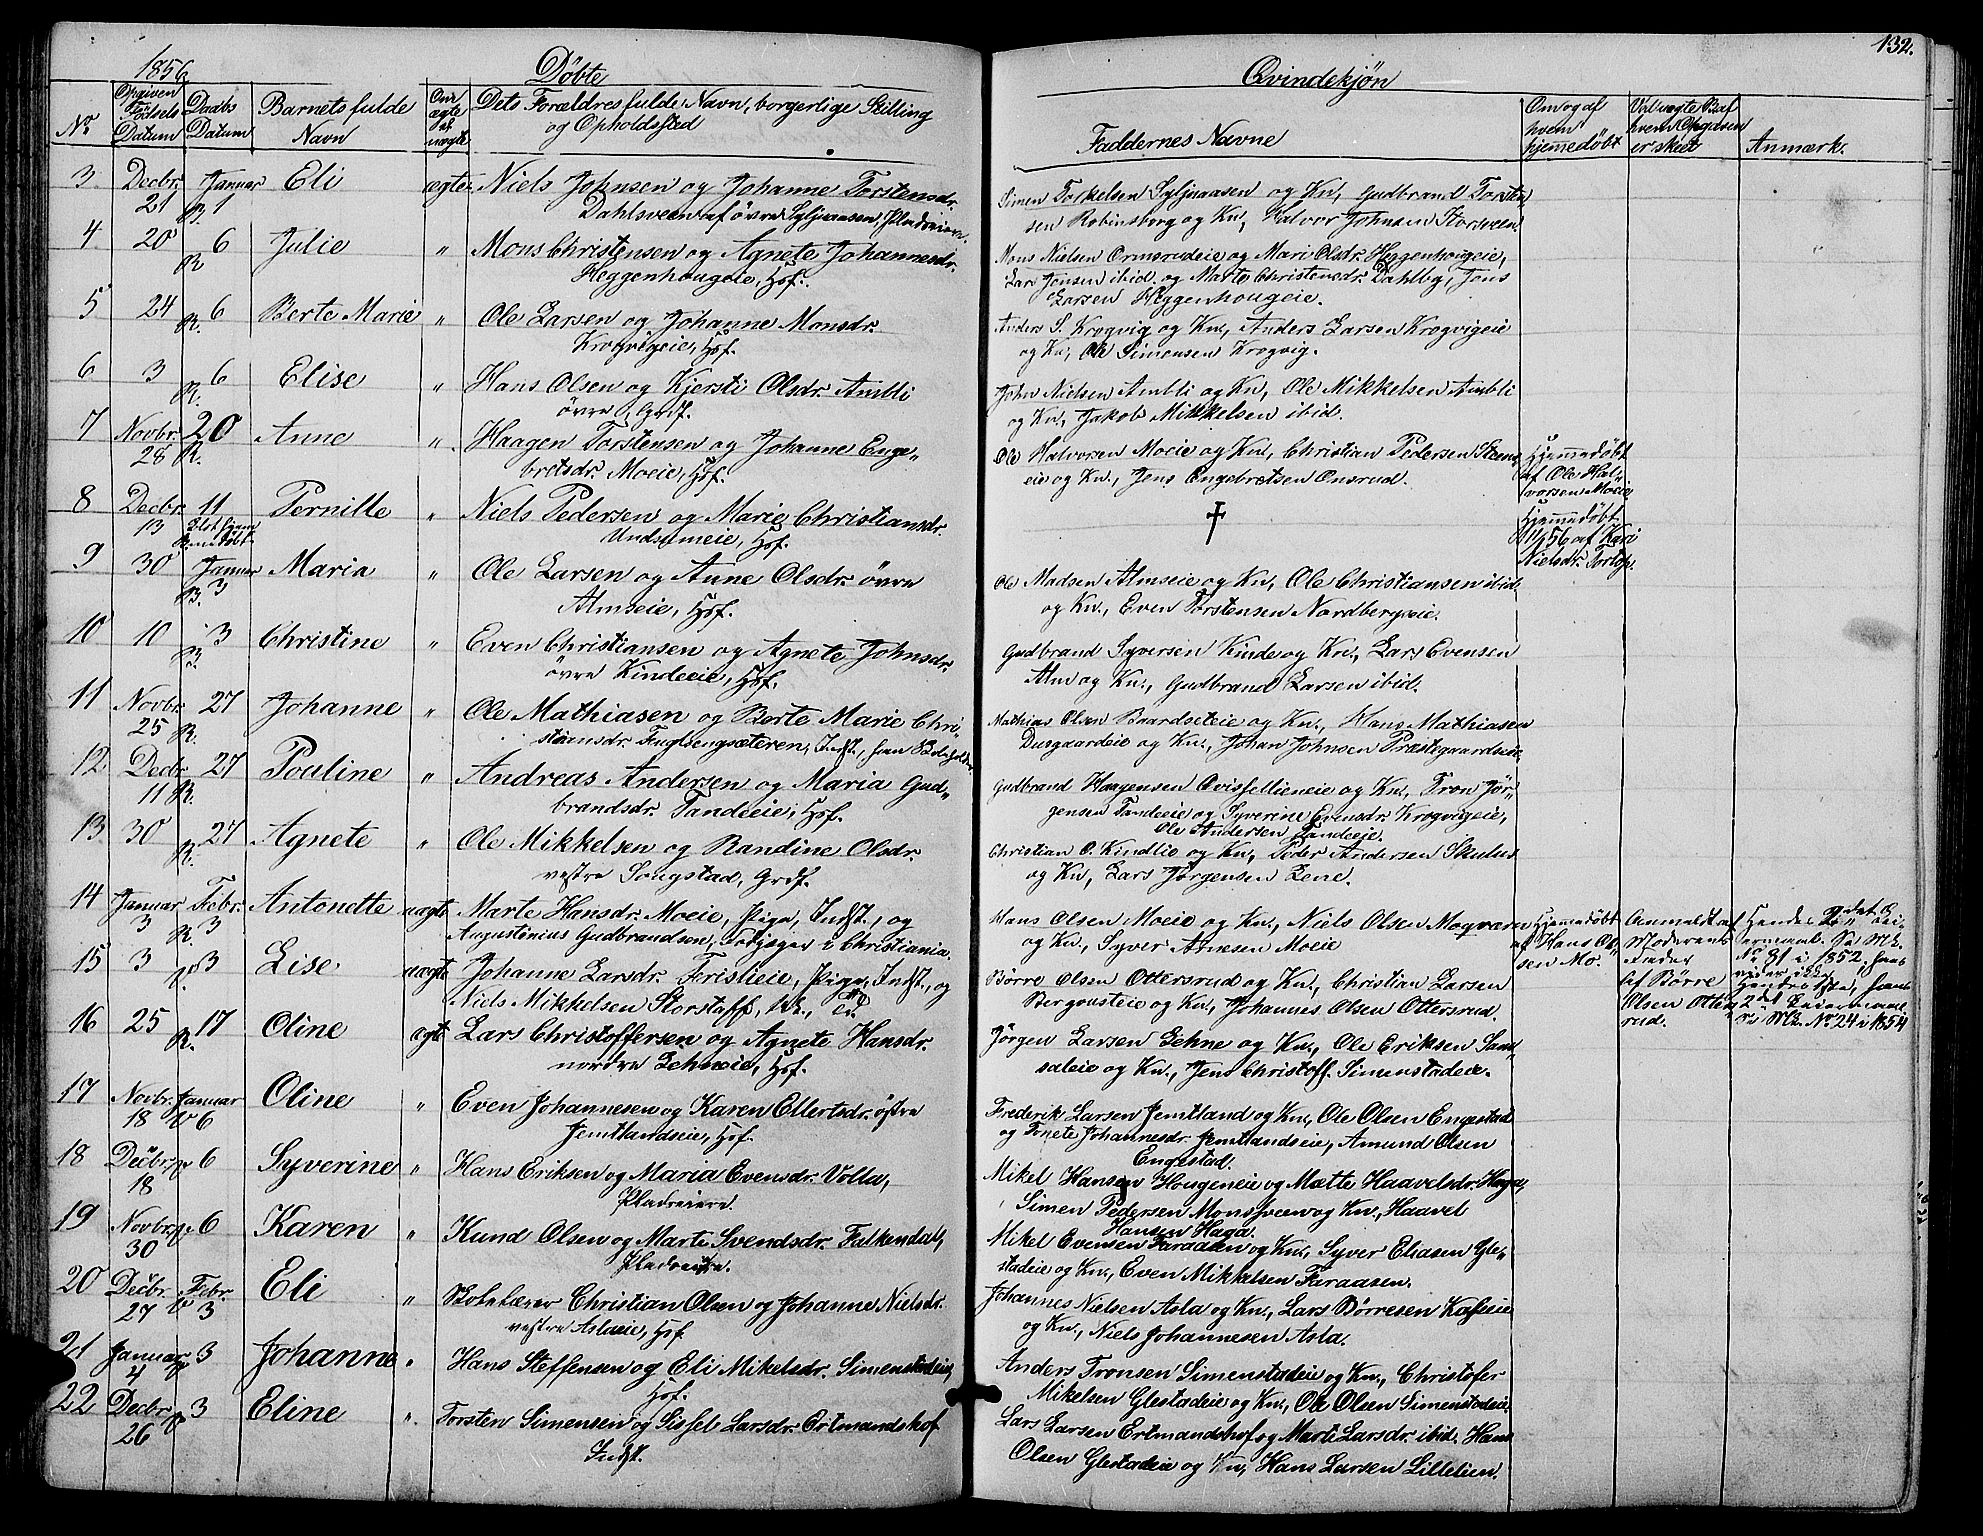 132.
1856
Döbte
Qvindekjön
No
Opgiven Födsels Datum
Daabs Datum
Barnets fulde Navn
Om ægte el. uægte
Dets Forældres fulde Navn, borgerlige Stilling
og Opholdssted
Faddernes Navne
Om og af hvem hjemmedöbt
Ved uægte B. af hvem Opgaven er skeet
Anmærk.
3 Decbr. 21 Januar 1 Eli ægte Niels Johnsen og Johanne Torstensdr.
Dahlsveen af övre Syljuaasen Pladseiere.
Simen Torkelsen Syljuaasen og Kn, Gudbrand Torsten
sen Robinsborg og Kn, Halvor Johnsen Storsveen.
4 20 R 6 Julie " Mons Christensen og Agnete Johannesdr.
Heggenhougeie, Hof.
Mons Nielsen Ormsrudeie og Mari Olsdr. Heggenhougeie,
Lars Jonsen ibid. og Marte Christensdr. Dahlby, Jens
Larsen Heggenhougeie.
5 24 R. 6 Berte Marie " Ole Larsen og Johanne Monsdr.
Krogvigeie, Hsf.
Anders S. Krogvig og Kn, Anders Larsen Krogvigeie
og Kn, Ole Simensen Krogvig.
6 3 R. 6 Elise " Hans Olsen og Kjersti Olsdr. Ambli
övre, Grdf.
John Nielsen Ambli og Kn, Ole Mikkelsen Ambli
og Kn, Jakob Mikkelsen ibid.
7 Novbr. 28 R. 20 Anne " Haagen Torstensen og Johanne Enge"
bretsdr. Moeie, Hsf.
Ole Halvorsen Moeie og Kn, Christian Pedersen Steens
eie og Kn., Jens Engebretsen Onsrud.
Hjemmedöbt
af Ole Hal"
vorsen Moeie
8 Decbr. 13 11 Pernille " Niels Pedersen og Marie Christiansdr.
Undsumeie, Hsf.
†
Hjemmedöbt
11/1 56 af Kari
Nielsdr. Tortop.
9 30 Januar 3 Maria " Ole Larsen og Anne Olsdr. övre
Almseie, Hsf.
Ole Madsen Almseie og Kn, Ole Christiansen ibid.
og Kn., Even Torstensen Nordbergseie.
10 10 3 Christine " Even Christiansen og Agnete Johnsdr.
övre Kindeeie, Hsf.
Gudbrand Syversen Kinde og Kn., Lars Evensen
Alm og Kn., Gudbrand Larsen ibid.
11 Novbr. 25 R. 27 Johanne " Ole Mathiasen og Berte Marie Chri"
stiansdr. Fuglsengsæteren, Indst.,
Mathias Olsen Baardseteie og Kn., Hans Mathiasen
og Kn., Johan Johnsen Præstegaardseie.
12 Decbr. 11 R. 27 Pouline " Andreas Andersen og Maria Gud"
brandsdr. Tandeeie, Hsf.
Gudbrand Haagensen Qvisfellieneie og Kn, Tron Jör"
gensen Tandeeie og Syverine Evensdr. Krogvigeie,
Ole Andersen Tandeeie.
13 30 R. 27 Agnete " Ole Mikkelsen og Randine Olsdr.
vestre Songstad, Grdf.
Christian O. Kindlie og Kn, Peder Andersen Skulus
og Kn, Lars Jörgensen Lene.
14 Januar 3 Febr. R. 3 Antonette uægte Marte Hansdr. Moeie, Pige, Indst., og
Augustinius Gudbrandsen, i Christiania.
Hans Olsen Moeie og Kn., Niels Olsen Moqvarn
og Kn., Syver Arnesen Moeie
Hjemmedöbt
af Hans Ol"
sen Mo.
Anmeldt af
Moderens
Fader
15 3 3 Lise uægte Johanne Larsdr. Feristieie, Pige, Indst., og
Niels Mikkelsen Storstaff,
Börre Olsen Ottersrud og Kn., Christian Larsen
Bergousteie og Kn., Johannes Olsen Ottersrud.
af Börre
Olsen Otter"
rud.
No 81 i 1852.
2det Leiermaal
No 24 i 1854
16 25 R. 17 Oline ægte Lars Christoffersen og Agnete Hansdr.
nordre Lehneeie, Hsf.
Jörgen Larsen Lehne og Kn., Ole Eriksen Sand
saleie og Kn., Jens Christoff. Simenstadeie.
17 Novbr. 18 Januar 6 Oline " Even Johannesen og Karen Ellertsdr. östre
Jemtlandseie, Hsf.
Frederik Larsen Jemtland og Kn, Ole Olsen Engestad
og Tonete Johannesdr. Jemtlandseie, Amund Olsen
Engestad.
18 Decbr. 18 6 Syverine " Hans Eriksen og Maria Evensdr. Volla,
Pladseiere.
Mikel Hansen Hougeneie og Mætte Haavelsdr. Haga,
Simen Pedersen Monsveen og Kn., Haavel
Hansen Haga.
19 Novbr. 30 6 Karen " Knud Olsen og Marte Svendsdr. Falkendal,
Pladseiere.
Mikel Evensen Faraasen og Kn, Syver Eliasen Gle"
stadeie og Kn., Even Mikkelsen Faraasen.
20 Decbr. 27 Febr. 3 Eli " Skolelærer Christian Olsen og Johanne Nielsdr.
vestre Aslaeie, Hsf
Johannes Nielsen Asla og Kn., Lars Börresen Kaseie
og Kn., Niels Johannesen Asla.
21 Januar 4 3 Johanne " Hans Steffensen og Eli Mikelsdr. Simenstadeie,
Hsf.
Anders Tronsen Simenstadeie og Kn., Christofer
Mikelsen Glestadeie og Kn, Ole Olsen Simenstadeie.
22 Decbr. 26 3 Eline " Torsten Simensen og Sissel Larsdr. Ertmandshof
Indst.
Lars Larsen Ertmandshof og Marte Larsdr. ibid. Hans
Olsen Glestadeie og Kn, Hans Larsen Lillelien.